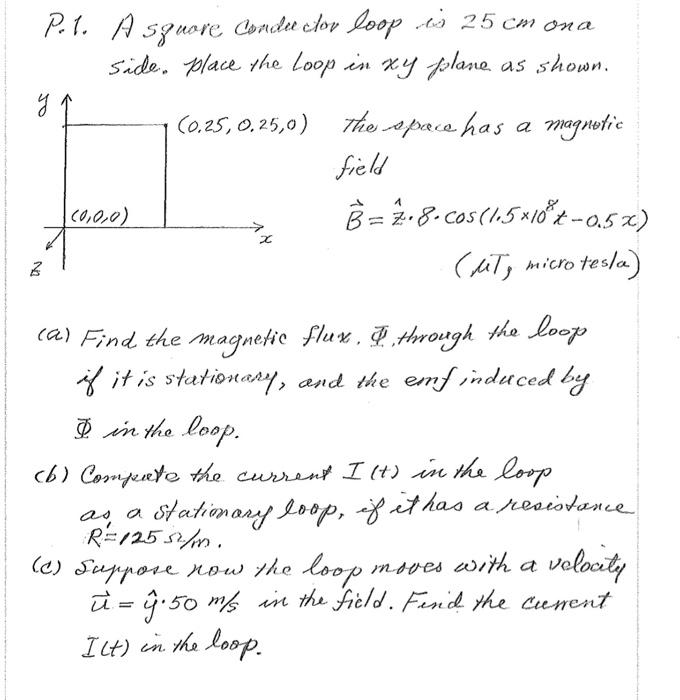 P.1. A square conductor loop is 25 cm on a
side. Place the loop in xy plane as shown.
y
(0.25, 0.25, 0)
The space has a magnetic
field
(0,0,0)
x
z
B⃗ = ẑ·8·cos(1.5×10⁸t − 0.5x)
(μT, micro tesla)
(a) Find the magnetic flux, Φ, through the loop
if it is stationary, and the emf induced by
Φ in the loop.
(b) Compute the current I(t) in the loop
as a stationary loop, if it has a resistance
R=125 Ω/m.
(c) Suppose now the loop moves with a velocity
u⃗ = ŷ·50 m/s in the field. Find the current
I(t) in the loop.